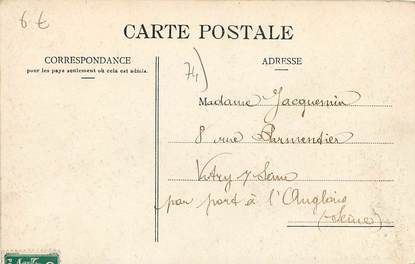 6 €
CARTE POSTALE
CORRESPONDANCE
pour les pays seulement où cela est admis.
74)
ADRESSE
Madame Jacquemin
8 rue Parmentier
Vitry s/ Seine
par port à l'Anglais
(Seine)